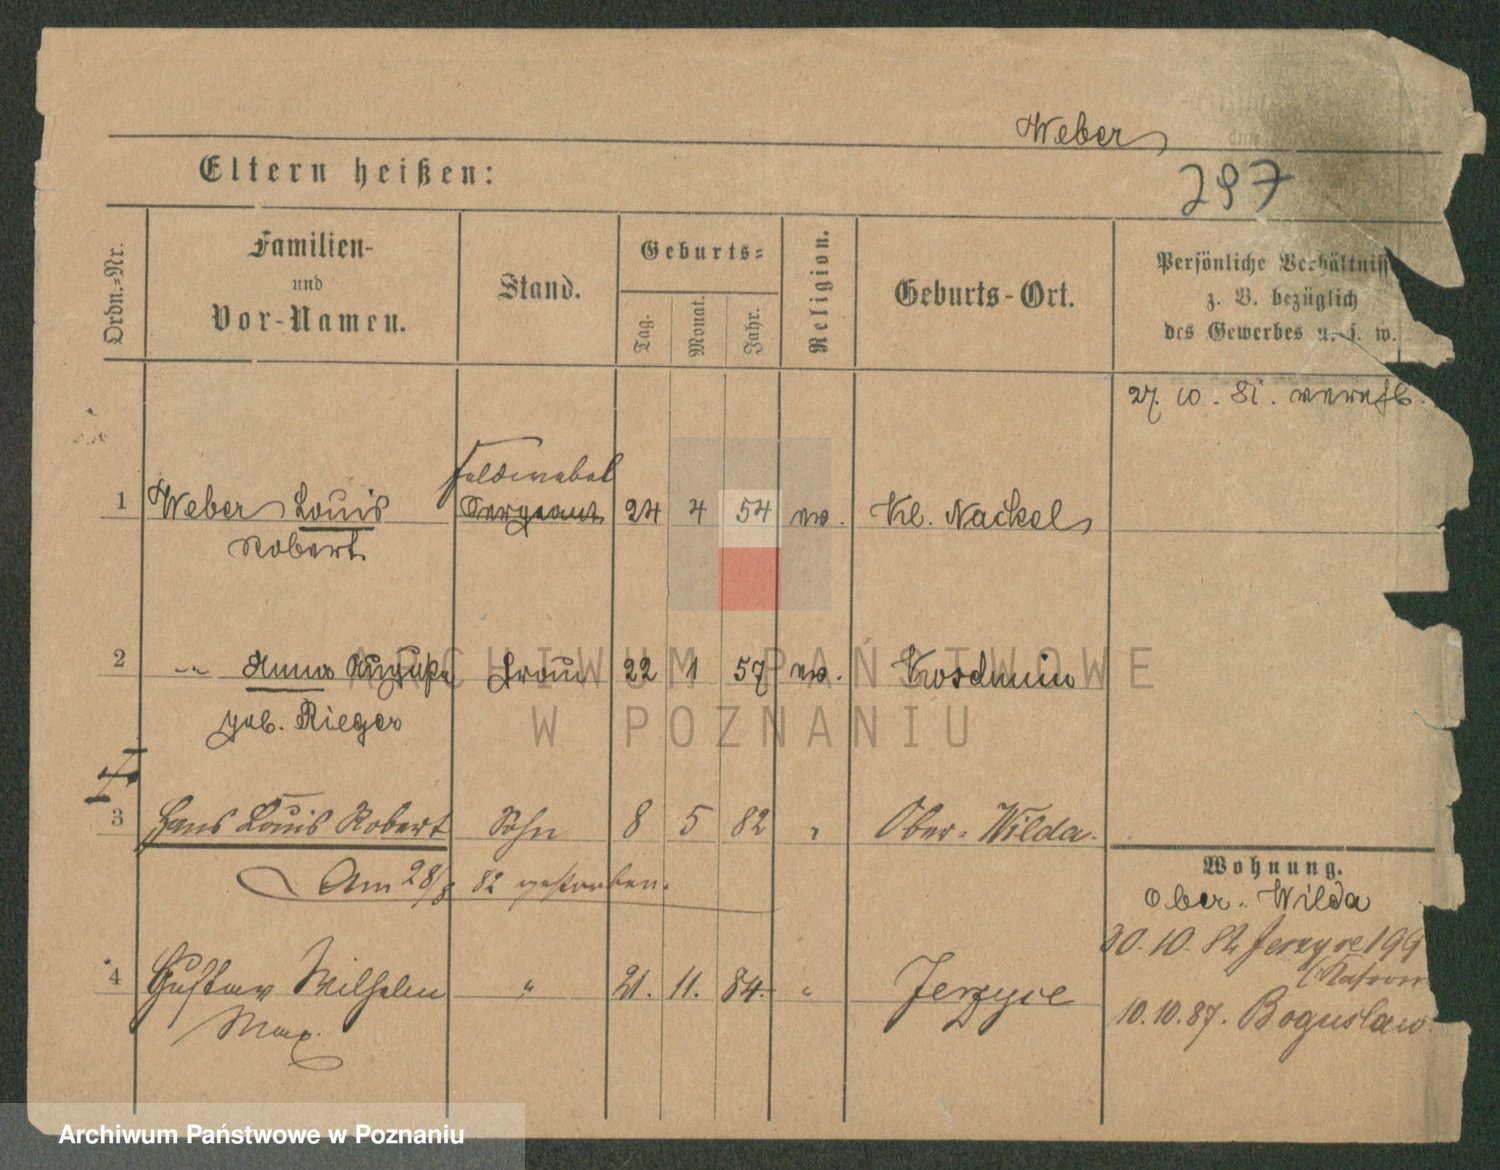 Weber
Eltern heißen:
297
Ordn.-Nr.
Familien-
und
Vor-Namen.
Stand.
Geburts-
Tag.
Monat.
Jahr.
Religion.
Geburts-Ort.
Persönliche Verhältniss
z. B. bezüglich
des Gewerbes u. s. w.
27. 10. 81. vereh.
Feldwebel
1 Weber Louis Sergeant 24 4 54 ev. Kl. Nackel
Robert
2 -"- Anna Auguste Frau 22 1 57 ev. Koschmin
geb. Rieger
3 Hans Louis Robert Sohn 8 5 82 " Ober-Wilda.
Am 28/8 82 gestorben.
Wohnung.
Ober-Wilda
20. 10. 82 Jerzyce 199
4 Gustav Wilhelm " 21. 11. 84. " Jerzyce
Max.
10. 10. 87. Boguslaw.
ARCHIWUM PAŃSTWOWE
W POZNANIU
Archiwum Państwowe w Poznaniu